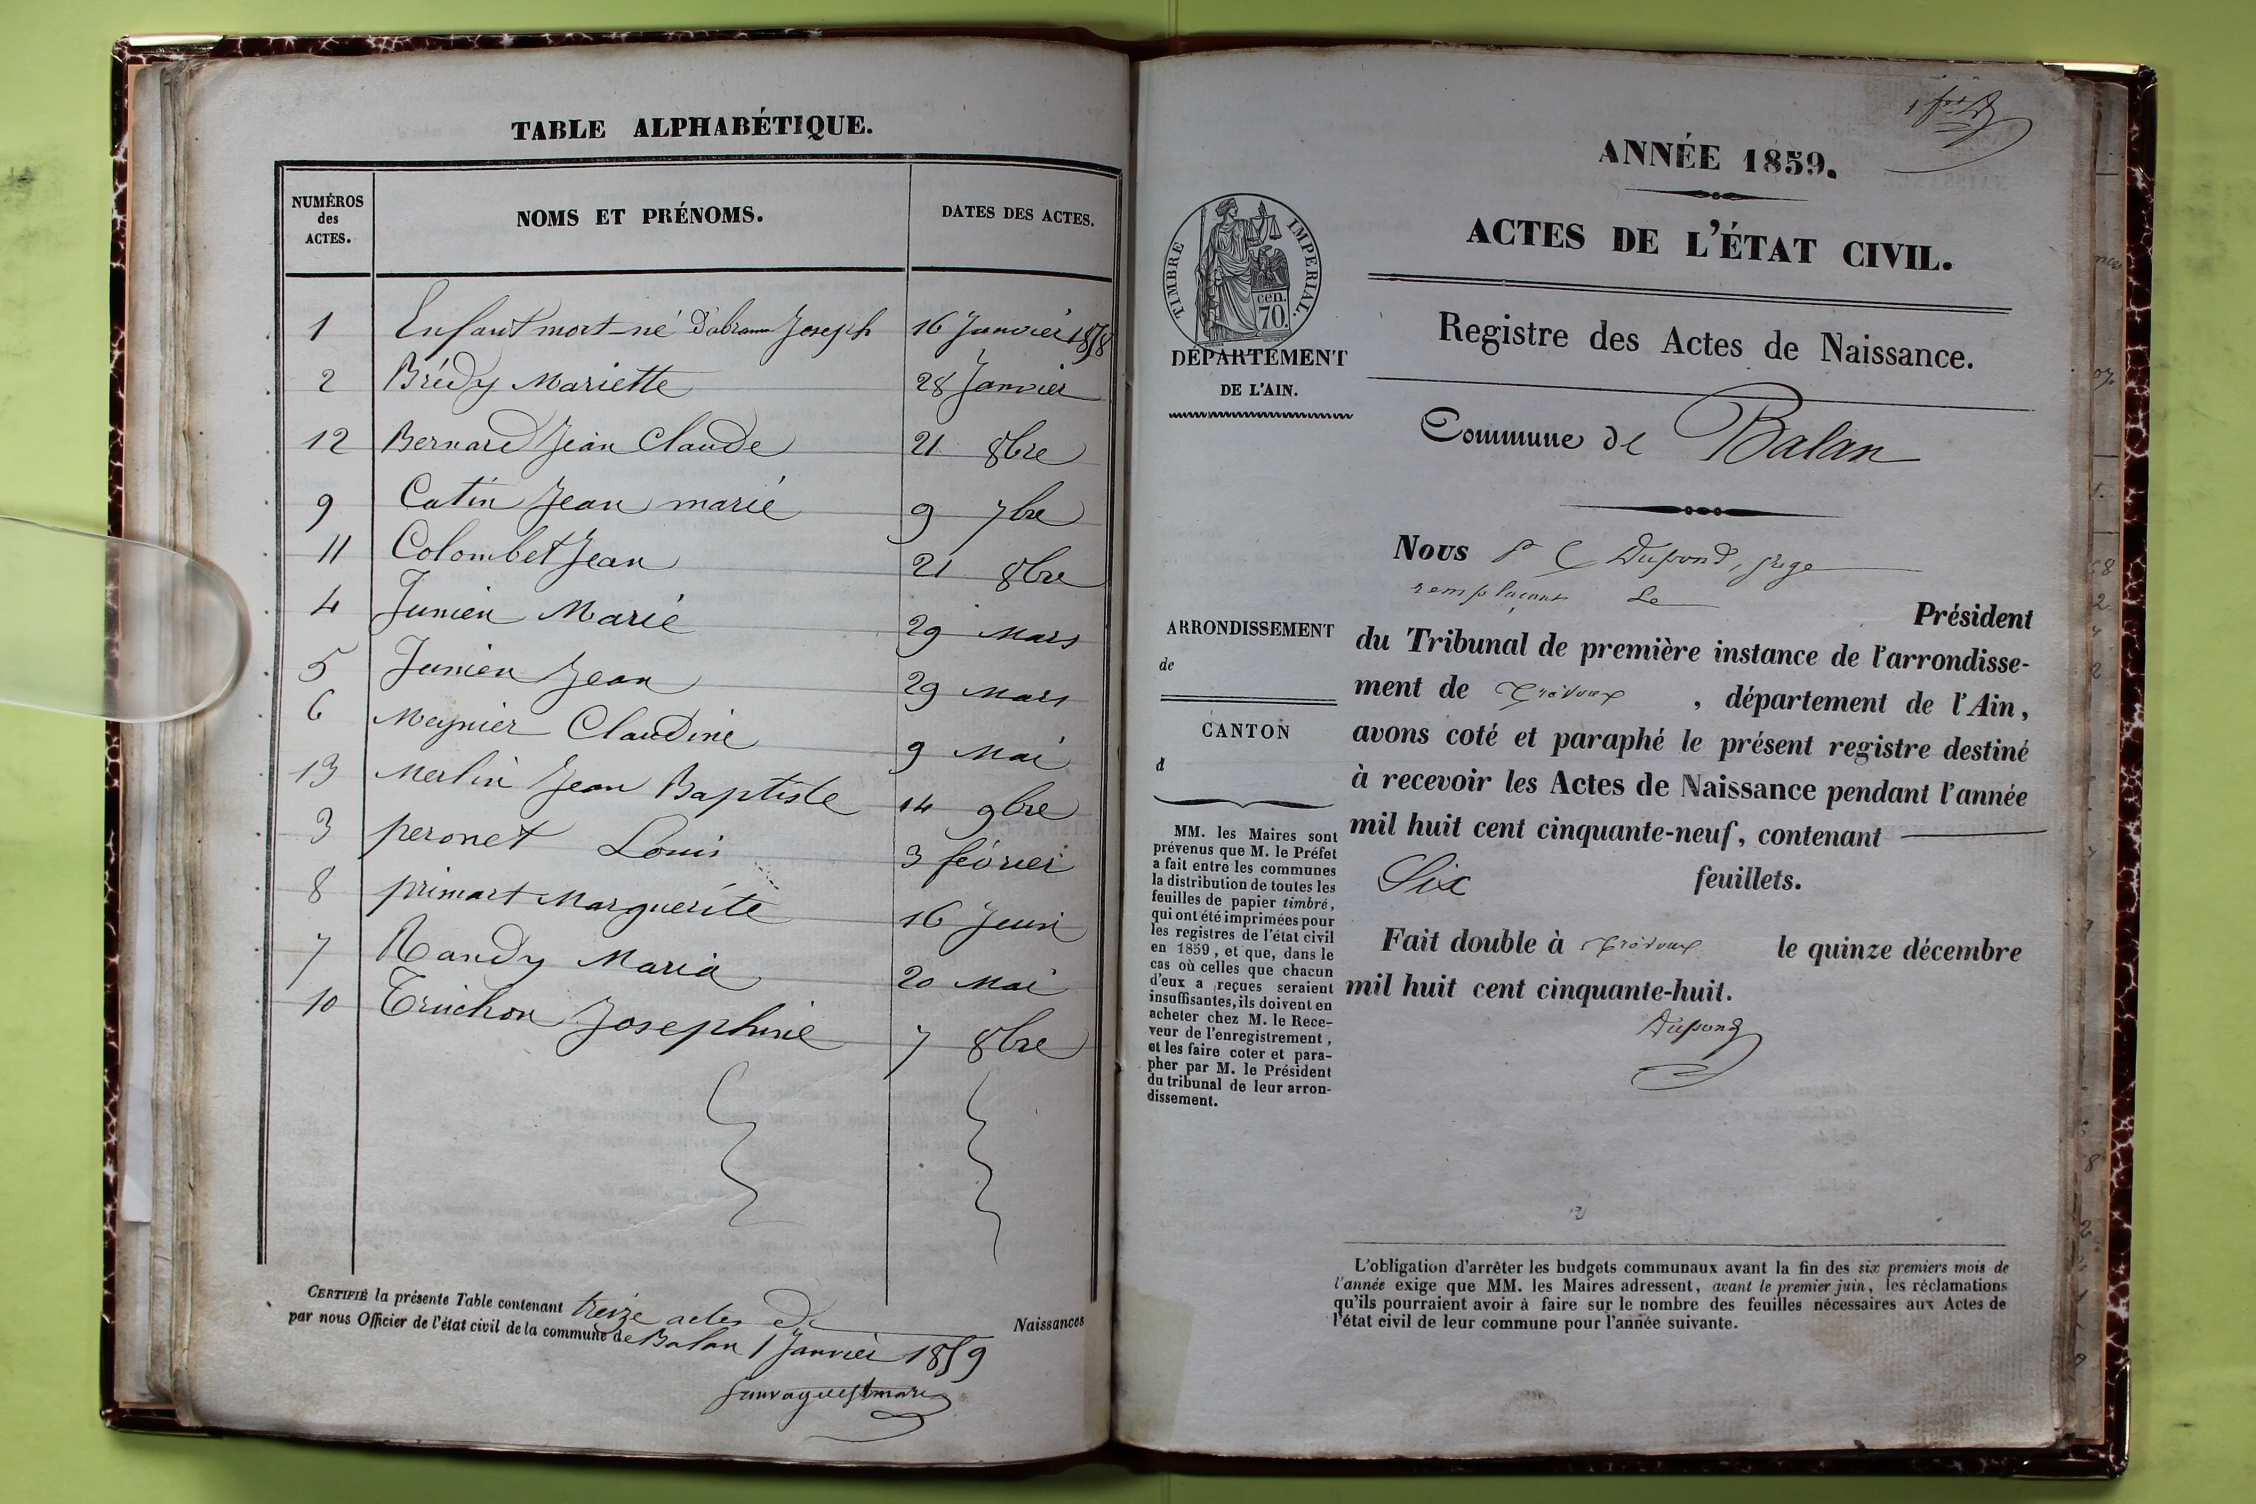 TABLE ALPHABÉTIQUE.
NUMÉROS des ACTES. NOMS ET PRÉNOMS. DATES DES ACTES.
1 Enfant mort-né D'abram Joseph 16 Janvier 1858
2 Brédy Mariette 28 Janvier
12 Bernard Jean Claude 21 8bre
9 Catin Jean marie 9 7bre
11 Colombet Jean 21 8bre
4 Junien Marie 29 Mars
5 Junien Jean 29 Mars
6 Meynier Claudine 9 Mai
13 Merlin Jean Baptiste 14 9bre
3 peronet Louis 3 février
8 primart Marguerite 16 Juin
7 Randy Maria 20 Mai
10 Truchon Josephine 7 8bre
CERTIFIÉ la présente Table contenant treize actes de Naissances
par nous Officier de l'état civil de la commune de Balan 1 Janvier 1859
ANNÉE 1859.
ACTES DE L'ÉTAT CIVIL.
TIMBRE IMPERIAL.
cen.
70.
DÉPARTEMENT
DE L'AIN.
Registre des Actes de Naissance.
Commune de Balan
Nous Dupond, juge
remplaçant Le
Président
du Tribunal de première instance de l'arrondisse-
ment de Trévoux, département de l'Ain,
avons coté et paraphé le présent registre destiné
à recevoir les Actes de Naissance pendant l'année
mil huit cent cinquante-neuf, contenant
Six feuillets.
Fait double à Trévoux le quinze décembre
mil huit cent cinquante-huit.
Dupond
ARRONDISSEMENT
de
CANTON
d
MM. les Maires sont
prévenus que M. le Préfet
a fait entre les communes
la distribution de toutes les
feuilles de papier timbré,
qui ont été imprimées pour
les registres de l'état civil
en 1859, et que, dans le
cas où celles que chacun
d'eux a reçues seraient
insuffisantes, ils doivent en
acheter chez M. le Rece-
veur de l'enregistrement,
et les faire coter et para-
pher par M. le Président
du tribunal de leur arron-
dissement.
L'obligation d'arrêter les budgets communaux avant la fin des six premiers mois de
l'année exige que MM. les Maires adressent, avant le premier juin, les réclamations
qu'ils pourraient avoir à faire sur le nombre des feuilles nécessaires aux Actes de
l'état civil de leur commune pour l'année suivante.